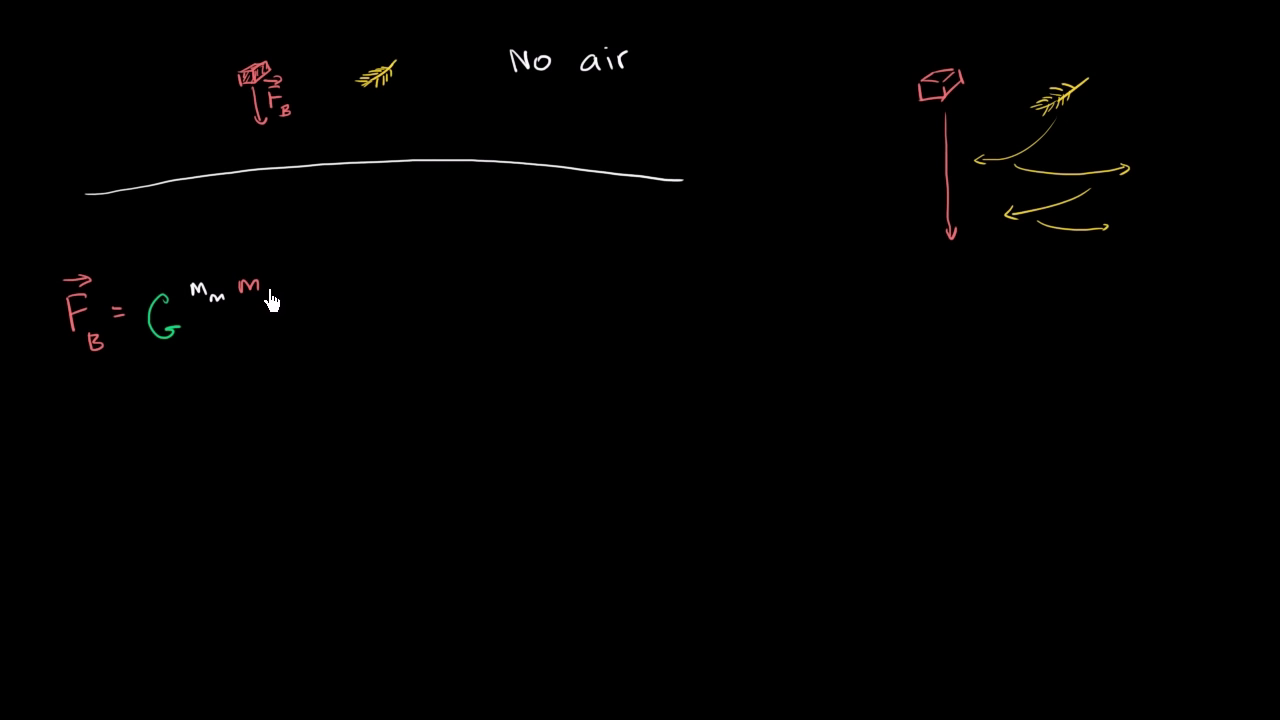 No air
F⃗_B
F⃗_B = G m_m m